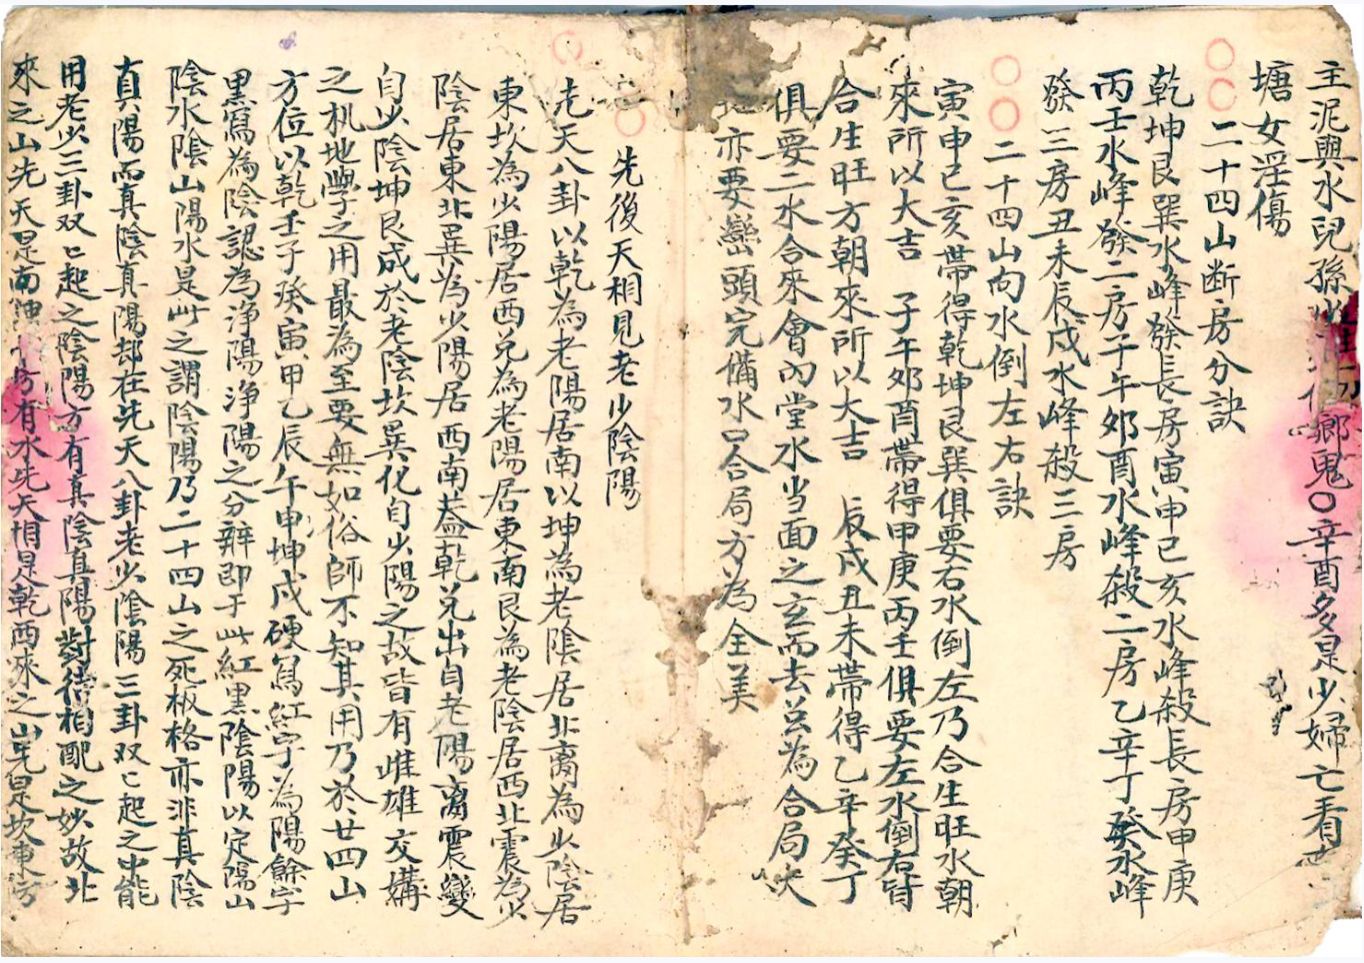 主泥與水兒孫 鄉鬼〇辛酉多是少婦亡看
塘女淫傷
〇〇二十四山断房分訣
乾坤艮巽水峰發長房寅申巳亥水峰殺長房申庚
丙壬水峰發二房子午郊酉水峰殺二房乙辛丁癸水峰
發三房丑未辰戍水峰殺三房
〇〇二十四山向水倒左右訣
寅申巳亥帶得乾坤艮巽俱要右水倒左乃合生旺水朝
來所以大吉 子午郊酉帶得甲庚丙壬俱要左水倒右皆
合生旺方朝來所以大吉 辰戍丑未帶得乙辛癸丁
俱要二水合來會內堂水当面之玄而去总為合局大
亦要巒頭完備水口合局方為全美
〇先後天相見老少陰陽
〇先天八卦以乾為老陽居南以坤為老陰居北离為少陰居
東坎為少陽居西兑為老陽居東南艮為老陰居西北震為少
陰居東北巽為少陽居西南蓋乾兑出自老陽离震變
自少陰坤艮成於老陰坎巽化自少陽之故皆有雌雄交媾
之机地學之用最為至要無如俗師不知其用乃於廿四山
方位以乾壬子癸寅甲乙辰午申坤戍硬寫紅字為陽餘字
黑寫為陰認為净陽净陽之分辨即于此紅黑陰陽以定陽山
陰水陰山陽水是此之謂陰陽乃二十四山之死板格亦非真陰
真陽而真陰真陽却在先天八卦老少陰陽三卦双匕起之中能
用老少三卦双匕起之陰陽方有真陰真陽對待相配之妙故北
來之山先天是南 方有水先天相見乾西來之山先是坎東方